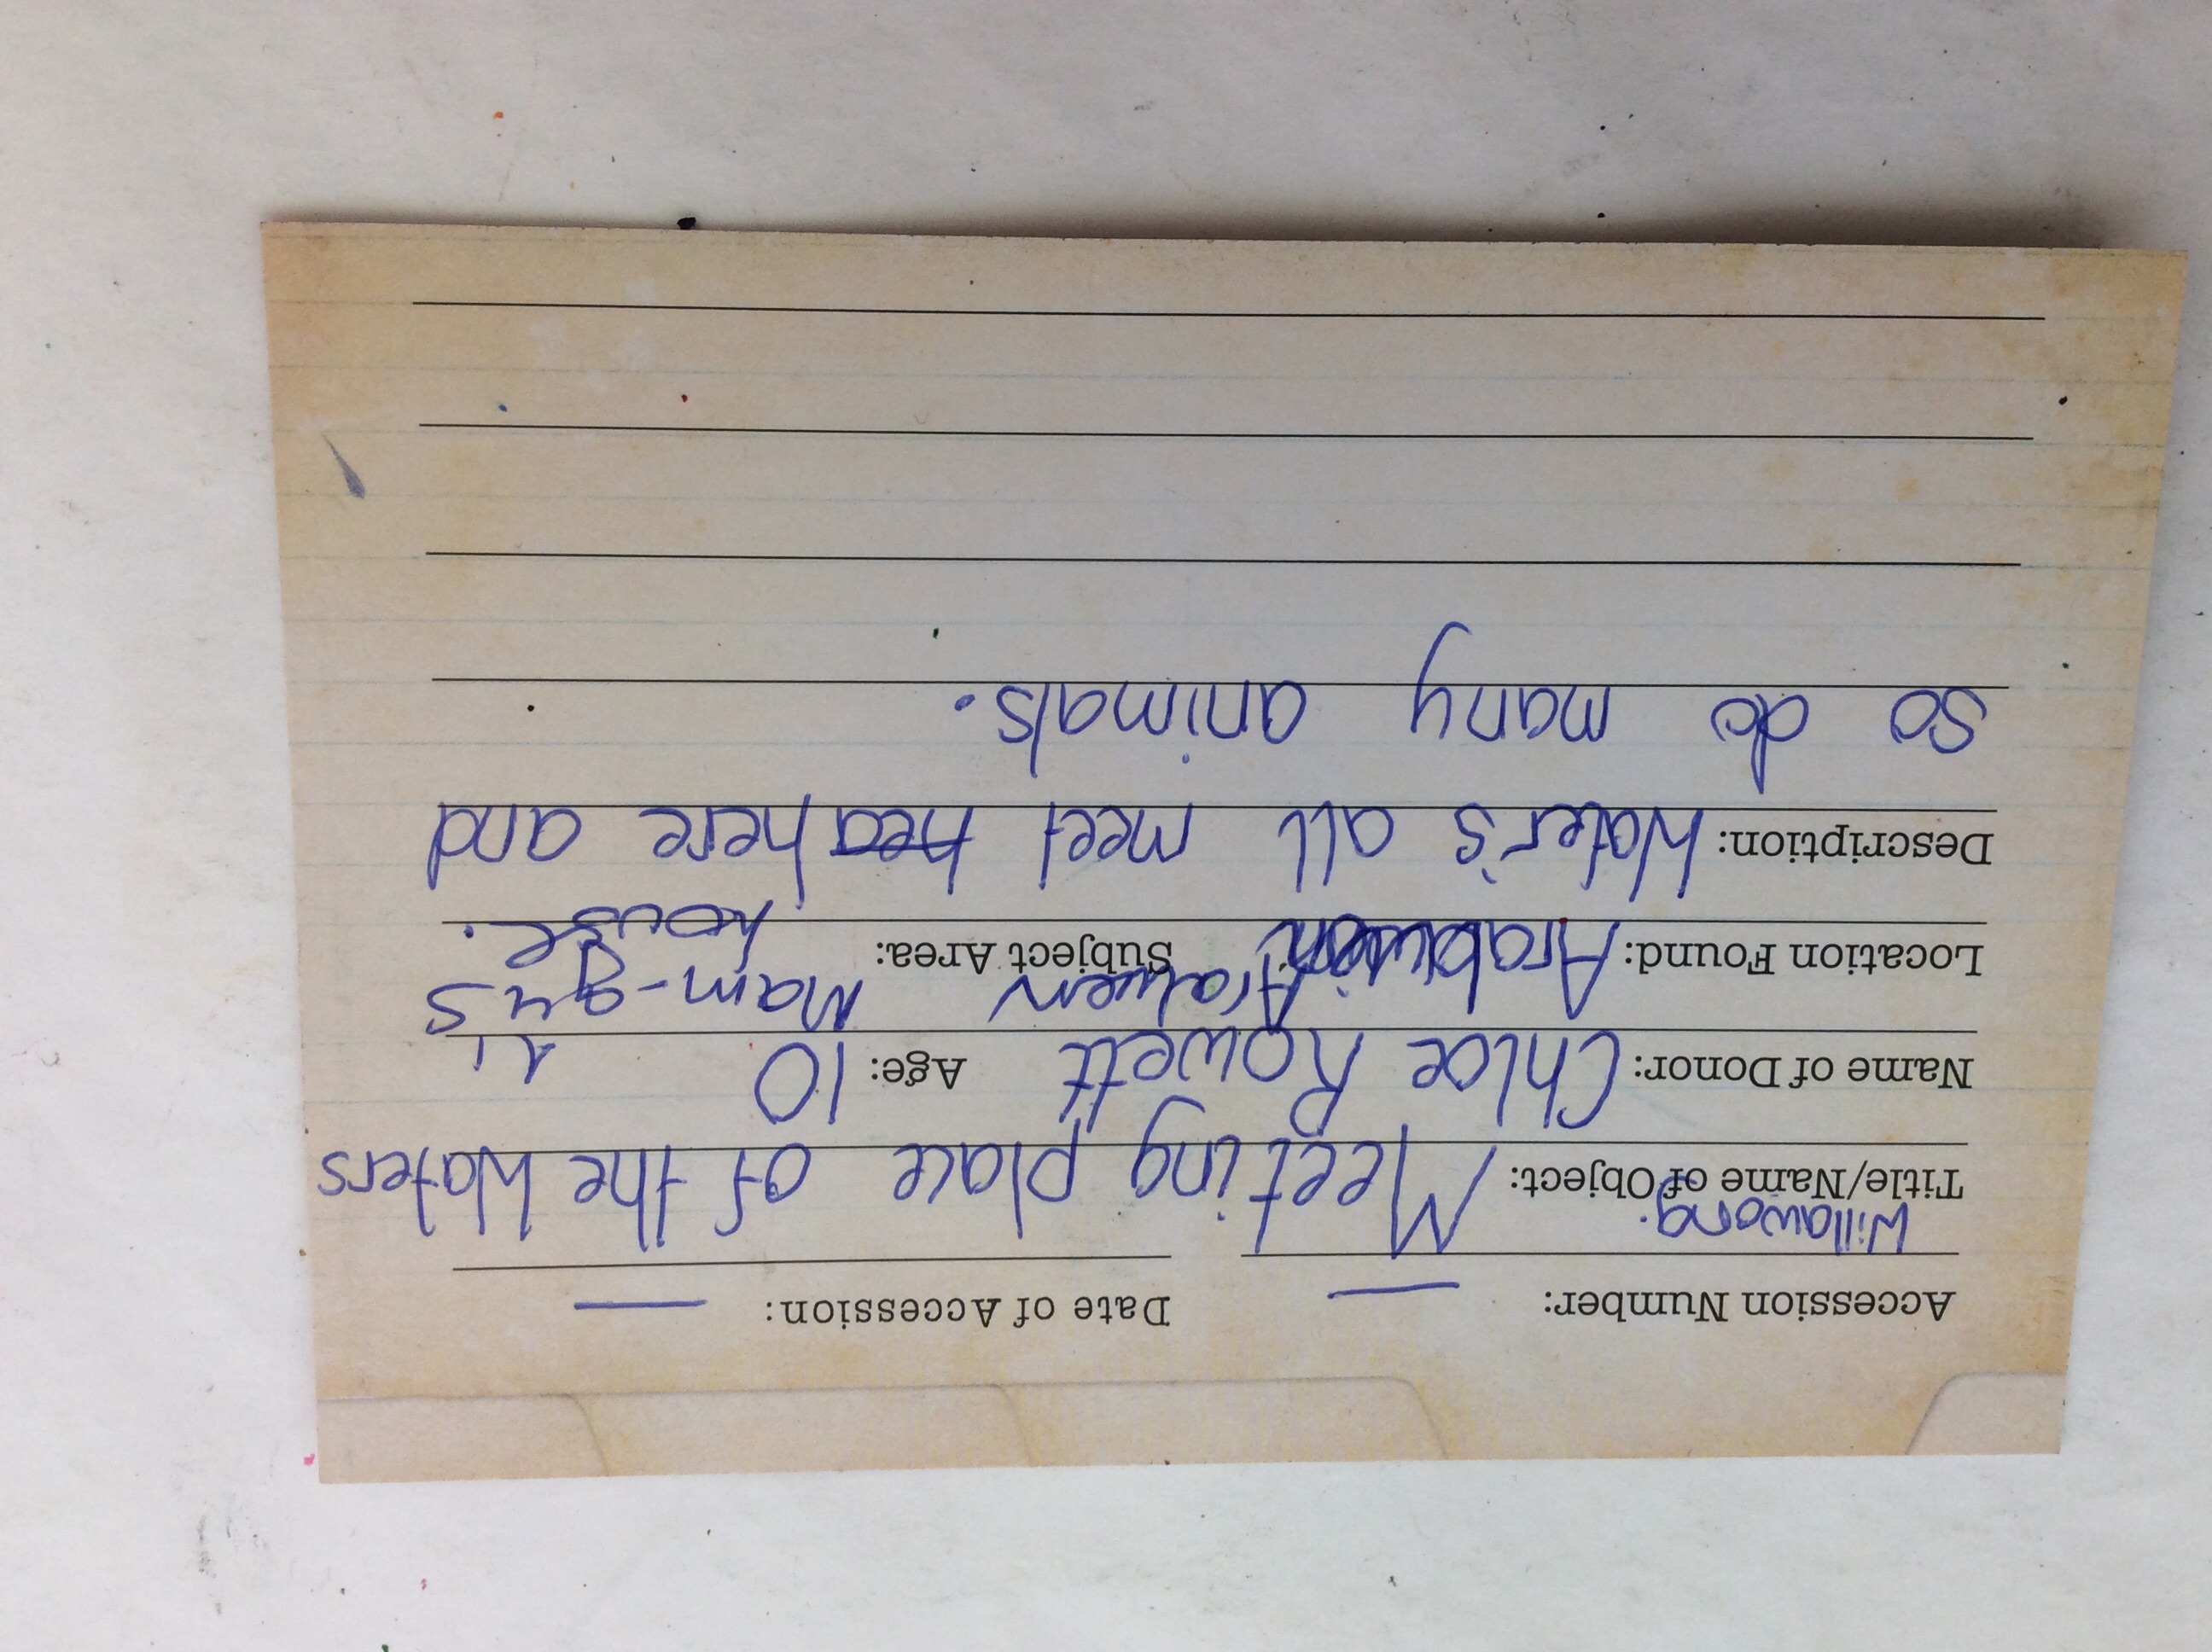 Accession Number: — Date of Accession: —
Willawong.
Title/Name of Object: Meeting place of the Waters
Name of Donor: Chloe Rowett Age: 10
Location Found: Araluen Subject Area: Mam-gu's
house.
Description: Water's all meet hea here and
so do many animals.